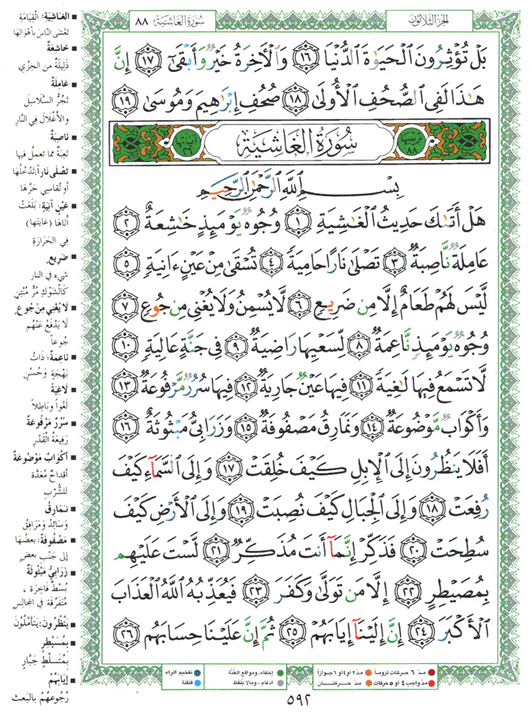 الجزء الثلاثون
سورة الغاشية ٨٨
بَلْ تُؤْثِرُونَ الْحَيَوٰةَ الدُّنْيَا ١٦ وَالْآخِرَةُ خَيْرٌ وَأَبْقَىٰٓ ١٧ إِنَّ
هَٰذَا لَفِي الصُّحُفِ الْأُولَىٰ ١٨ صُحُفِ إِبْرَٰهِيمَ وَمُوسَىٰ ١٩
سُورَةُ الغَاشِيَةِ
بِسْمِ اللَّهِ الرَّحْمَٰنِ الرَّحِيمِ
هَلْ أَتَىٰكَ حَدِيثُ الْغَٰشِيَةِ ١ وُجُوهٌ يَوْمَئِذٍ خَٰشِعَةٌ ٢
عَامِلَةٌ نَّاصِبَةٌ ٣ تَصْلَىٰ نَارًا حَامِيَةً ٤ تُسْقَىٰ مِنْ عَيْنٍ ءَانِيَةٍ ٥
لَّيْسَ لَهُمْ طَعَامٌ إِلَّا مِن ضَرِيعٍ ٦ لَّا يُسْمِنُ وَلَا يُغْنِي مِن جُوعٍ ٧
وُجُوهٌ يَوْمَئِذٍ نَّاعِمَةٌ ٨ لِّسَعْيِهَا رَاضِيَةٌ ٩ فِي جَنَّةٍ عَالِيَةٍ ١٠
لَّا تَسْمَعُ فِيهَا لَٰغِيَةً ١١ فِيهَا عَيْنٌ جَارِيَةٌ ١٢ فِيهَا سُرُرٌ مَّرْفُوعَةٌ ١٣
وَأَكْوَابٌ مَّوْضُوعَةٌ ١٤ وَنَمَارِقُ مَصْفُوفَةٌ ١٥ وَزَرَابِيُّ مَبْثُوثَةٌ ١٦
أَفَلَا يَنظُرُونَ إِلَى الْإِبِلِ كَيْفَ خُلِقَتْ ١٧ وَإِلَى السَّمَآءِ كَيْفَ
رُفِعَتْ ١٨ وَإِلَى الْجِبَالِ كَيْفَ نُصِبَتْ ١٩ وَإِلَى الْأَرْضِ كَيْفَ
سُطِحَتْ ٢٠ فَذَكِّرْ إِنَّمَآ أَنتَ مُذَكِّرٌ ٢١ لَّسْتَ عَلَيْهِم
بِمُصَيْطِرٍ ٢٢ إِلَّا مَن تَوَلَّىٰ وَكَفَرَ ٢٣ فَيُعَذِّبُهُ اللَّهُ الْعَذَابَ
الْأَكْبَرَ ٢٤ إِنَّ إِلَيْنَآ إِيَابَهُمْ ٢٥ ثُمَّ إِنَّ عَلَيْنَا حِسَابَهُم ٢٦
الغاشية: القيامة
تغشى الناس بأهوالها
خاشعة
ذليلة من الخزي
عاملة
تجر السلاسل
والأغلال في النار
ناصبة
تعبة مما تعمل فيها
تصلى نارا: تدخلها
أو تقاسي حرها
عين آنية: بلغت
أناها (غايتها)
في الحرارة
ضريع
شيء في النار
كالشوك مر منتن
لا يغني من جوع
لا يدفع عنهم
جوعا
ناعمة: ذات
بهجة وحسن
لاغية
لغوا وباطلا
سرر مرفوعة
رفيعة القدر
أكواب موضوعة
أقداح معدة
للشرب
نمارق
وسائد ومرافق
مصفوفة: بعضها
إلى جنب بعض
زرابي مبثوثة
بسط فاخرة
متفرقة في المجالس
ينظرون: يتأملون
بمسيطر
بمتسلط جبار
إيابهم
رجوعهم بالبعث
مد ٦ حركات لزوما مد ٢ أو ٤ أو ٦ جوازا إخفاء، ومواقع الغنة تفخيم الراء
مد واجب ٤ أو ٥ حركات مد حركتان إدغام، وما لا يلفظ قلقلة
٥٩٢